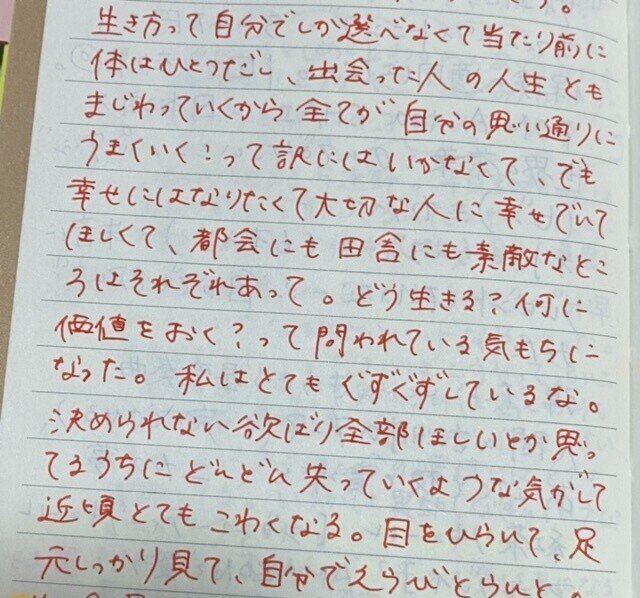 生き方って自分でしか選べなくて当たり前に
体はひとつだし、出会った人の人生とも
まじわっていくから全てが自分の思い通りに
うまくいく!って訳にはいかなくて、でも
幸せにはなりたくて大切な人に幸せでいて
ほしくて、都会にも田舎にも素敵なとこ
ろはそれぞれあって。どう生きる?何に
価値をおく?って問われている気もちに
なった。私はとてもぐずぐずしているな。
決められない欲ばり全部ほしいとか思っ
てるうちにどんどん失っていくような気がして
近頃とてもこわくなる。目をひらいて、足
元しっかり見て、自分でえらびとらんと。